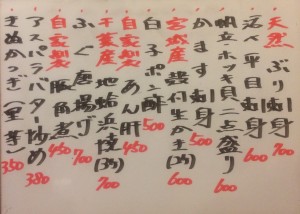 天然 ぶり刺身 700
活〆 平目刺身 600
帆立・ホッキ貝二点盛り 600
かます刺身 500
宮城産 殻付生かき(2ヶ) 600
白子ポン酢 500
自家製 あん肝 450
千葉産 地蛤浜焼(3ヶ) 700
ふぐ唐揚げ 700
自家製 豚角煮 450
アスパラバター炒め 380
きぬかつぎ(里芋) 350